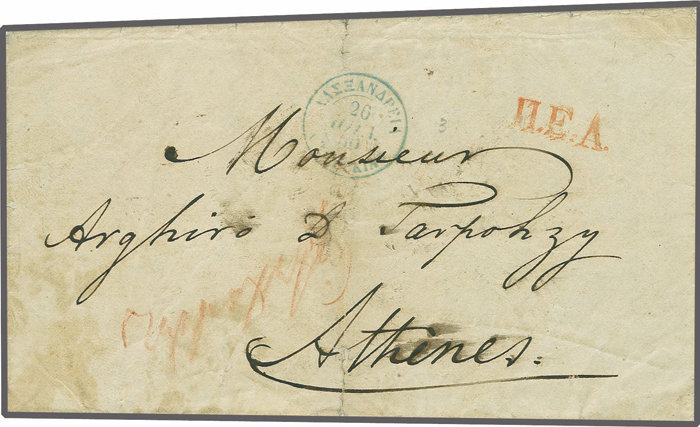 ΑΛΕΞΑΝΔΡΕΙΑ
26
Π.Ε.Α.
3
Monsieur
Arghiró D Tarpohzy
Athènes.